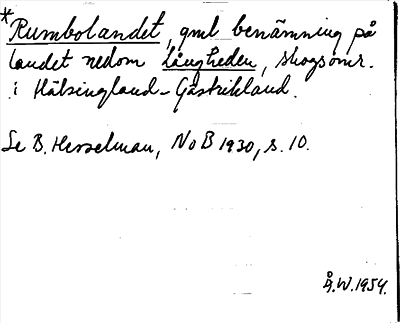 *Rumbolandet, gml benämning på
landet nedom Långheden, skogsomr.
i Hälsingland-Gästrikland.
Se B. Hesselman, NoB 1930, s. 10.
Å.W. 1954.